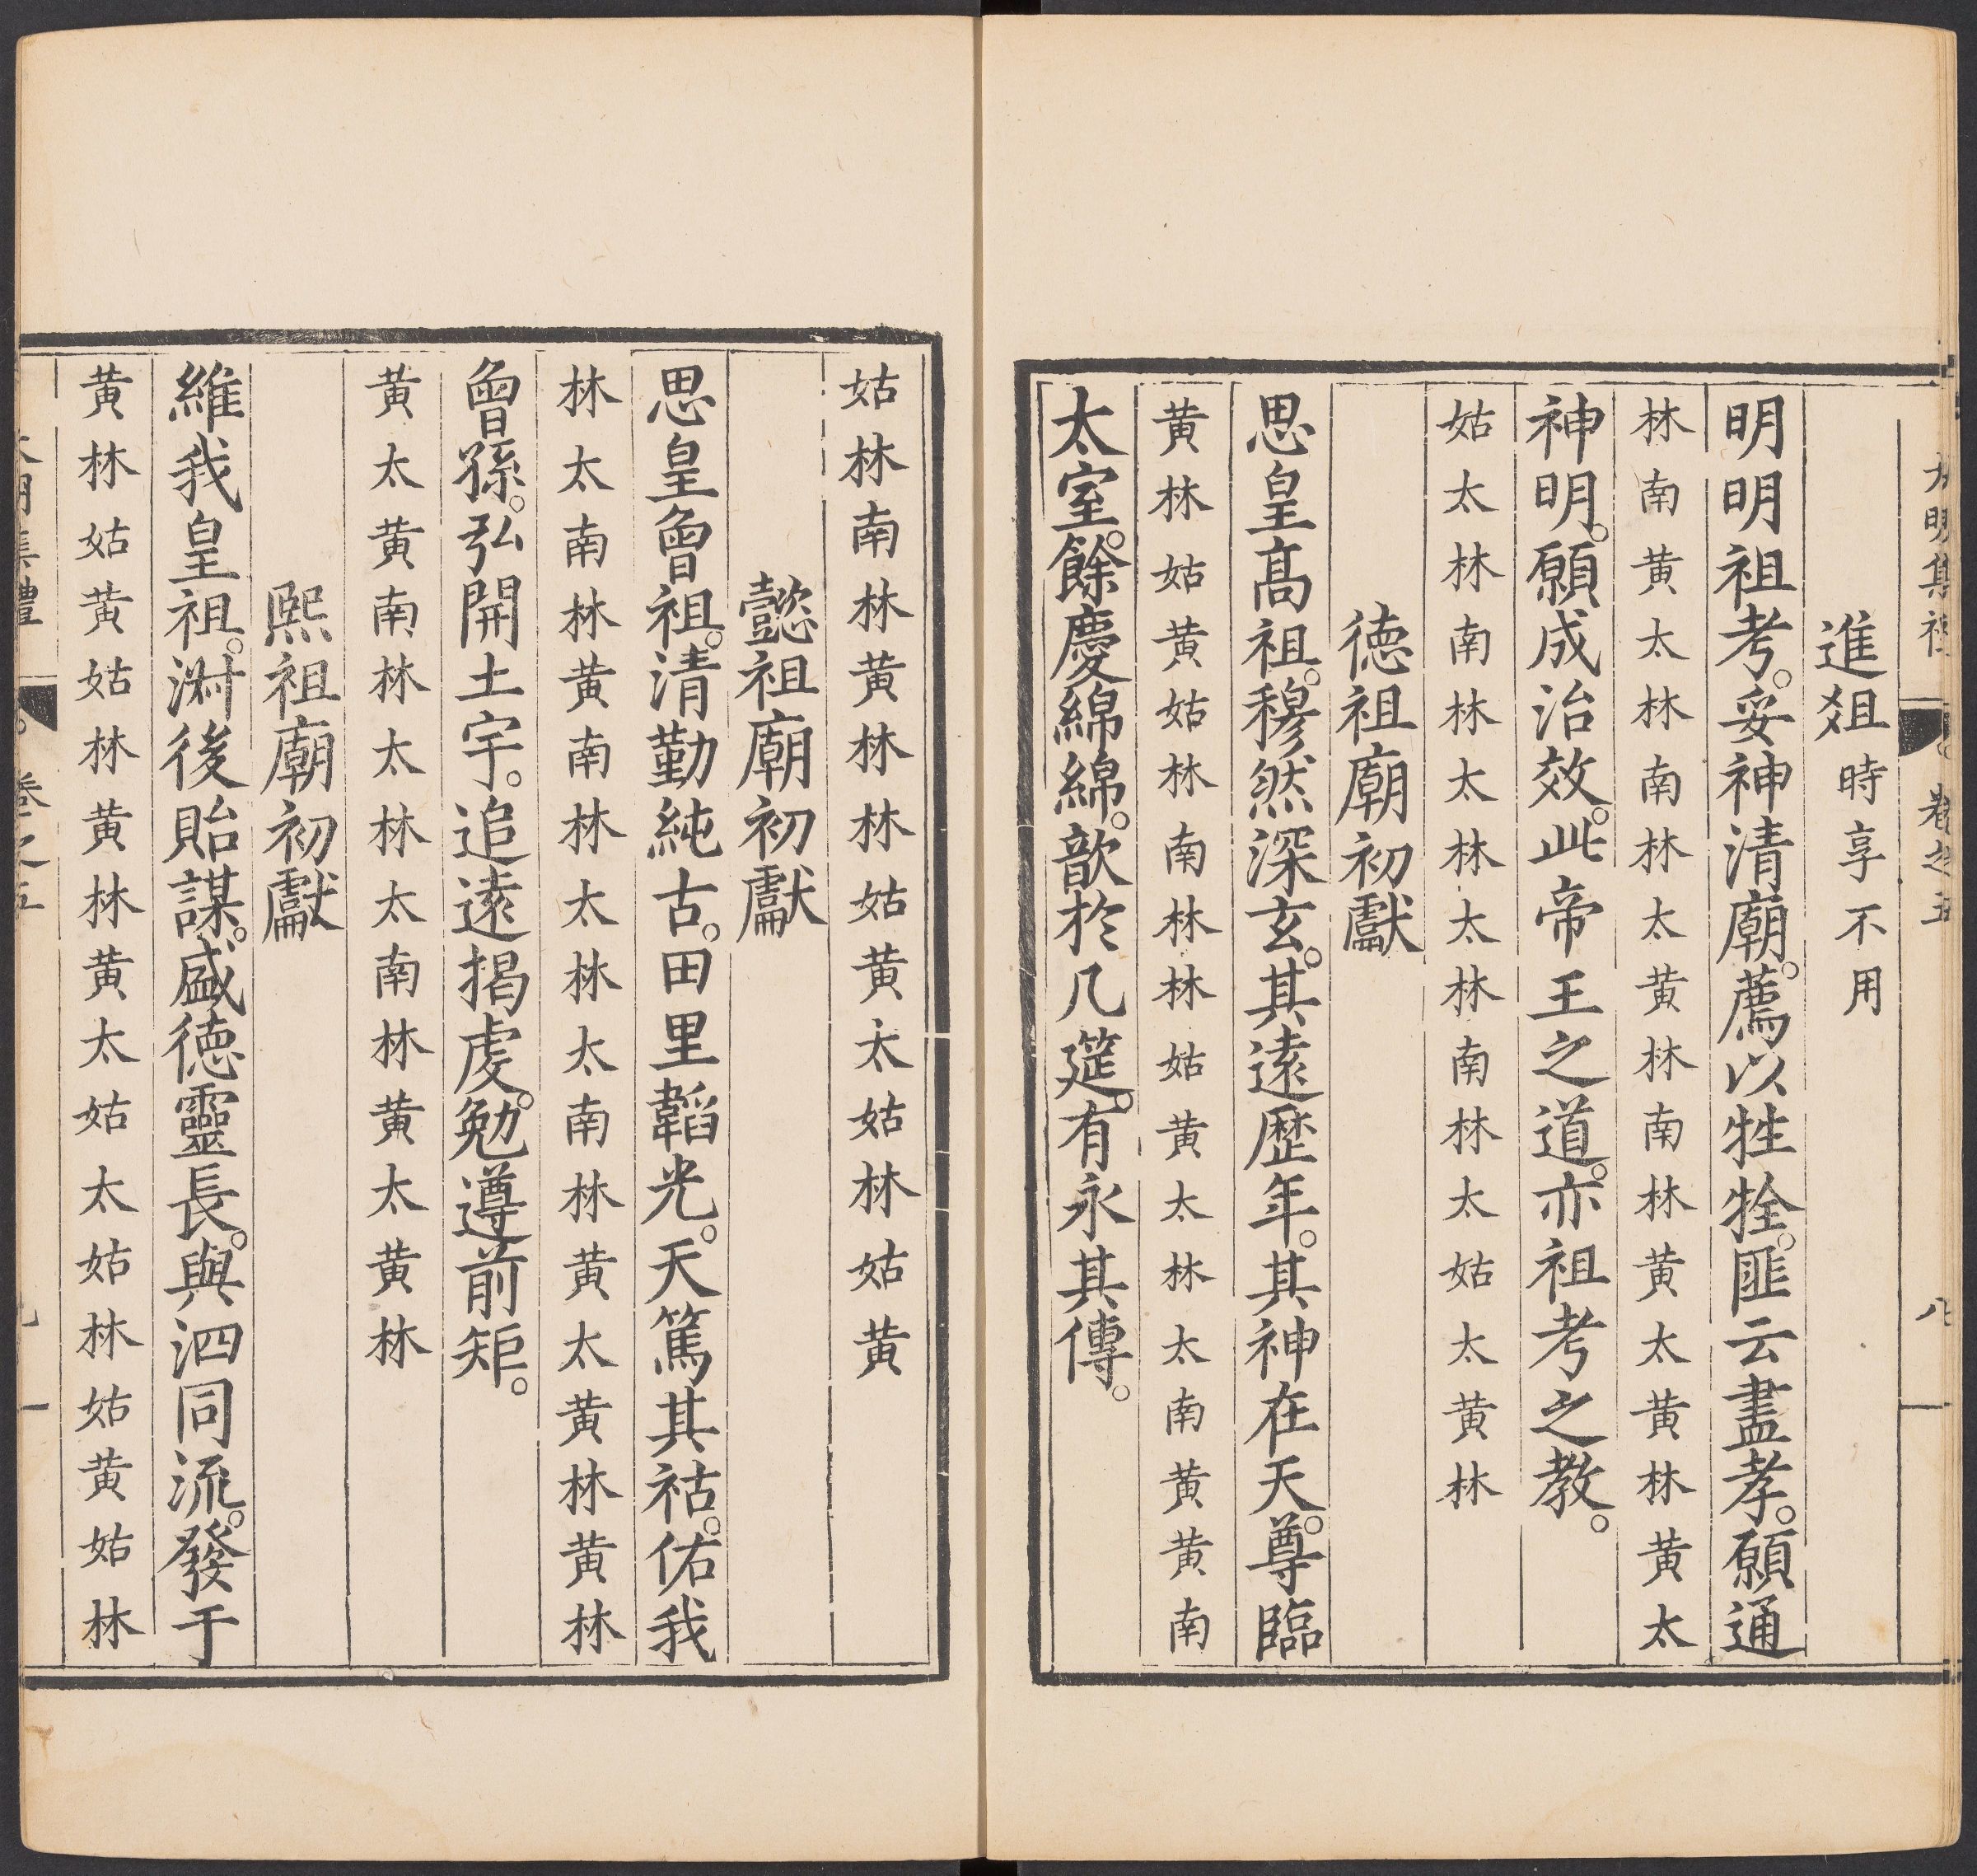 大明集禮 卷之五 八
進俎時享不用
明明祖考。妥神清廟。薦以牲牷。匪云盡孝。願通
林南黄太林南林太黄林南林黄太黄林黄太
神明。願成治效。此帝王之道。亦祖考之教。
姑太林南林太林太林南林太姑太黄林
德祖廟初獻
思皇髙祖。穆然深玄。其逺歷年。其神在天。尊臨
黄林姑黄姑林南林林姑黄太林太南黄黄南
太室。餘慶綿綿。歆於几筵。有永其傳。
姑林南林黄林林姑黄太姑林姑黄
懿祖廟初獻
思皇曾祖。清勤純古。田里韜光。天篤其祜。佑我
林太南林黄南林太林太南林黄太黄林黄林
曾孫。弘開土宇。追逺揭虔。勉遵前矩。
黄太黄南林太林太南林黄太黄林
熙祖廟初獻
維我皇祖。淑後貽謀。盛德靈長。與泗同流。發于
黄林姑黄姑林黄林黄太姑太姑林姑黄姑林
大明集禮 卷之五